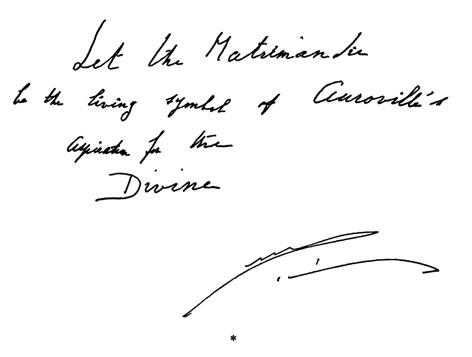 Let the Matrimandir
be the living symbol of Auroville's
aspiration for the
Divine
*